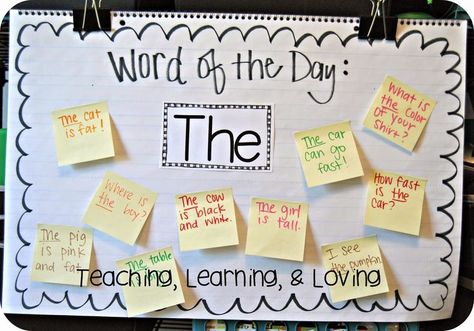 Word of the Day:
The
The cat
is fat!
What is
the color
of your
shirt?
The car
can go
fast!
Where is
the boy?
The cow
is black
and white.
The girl
is tall.
How fast
is the
car?
The pig
is pink
and fat
The table
I see
the pumpkin
Teaching, Learning, & Loving